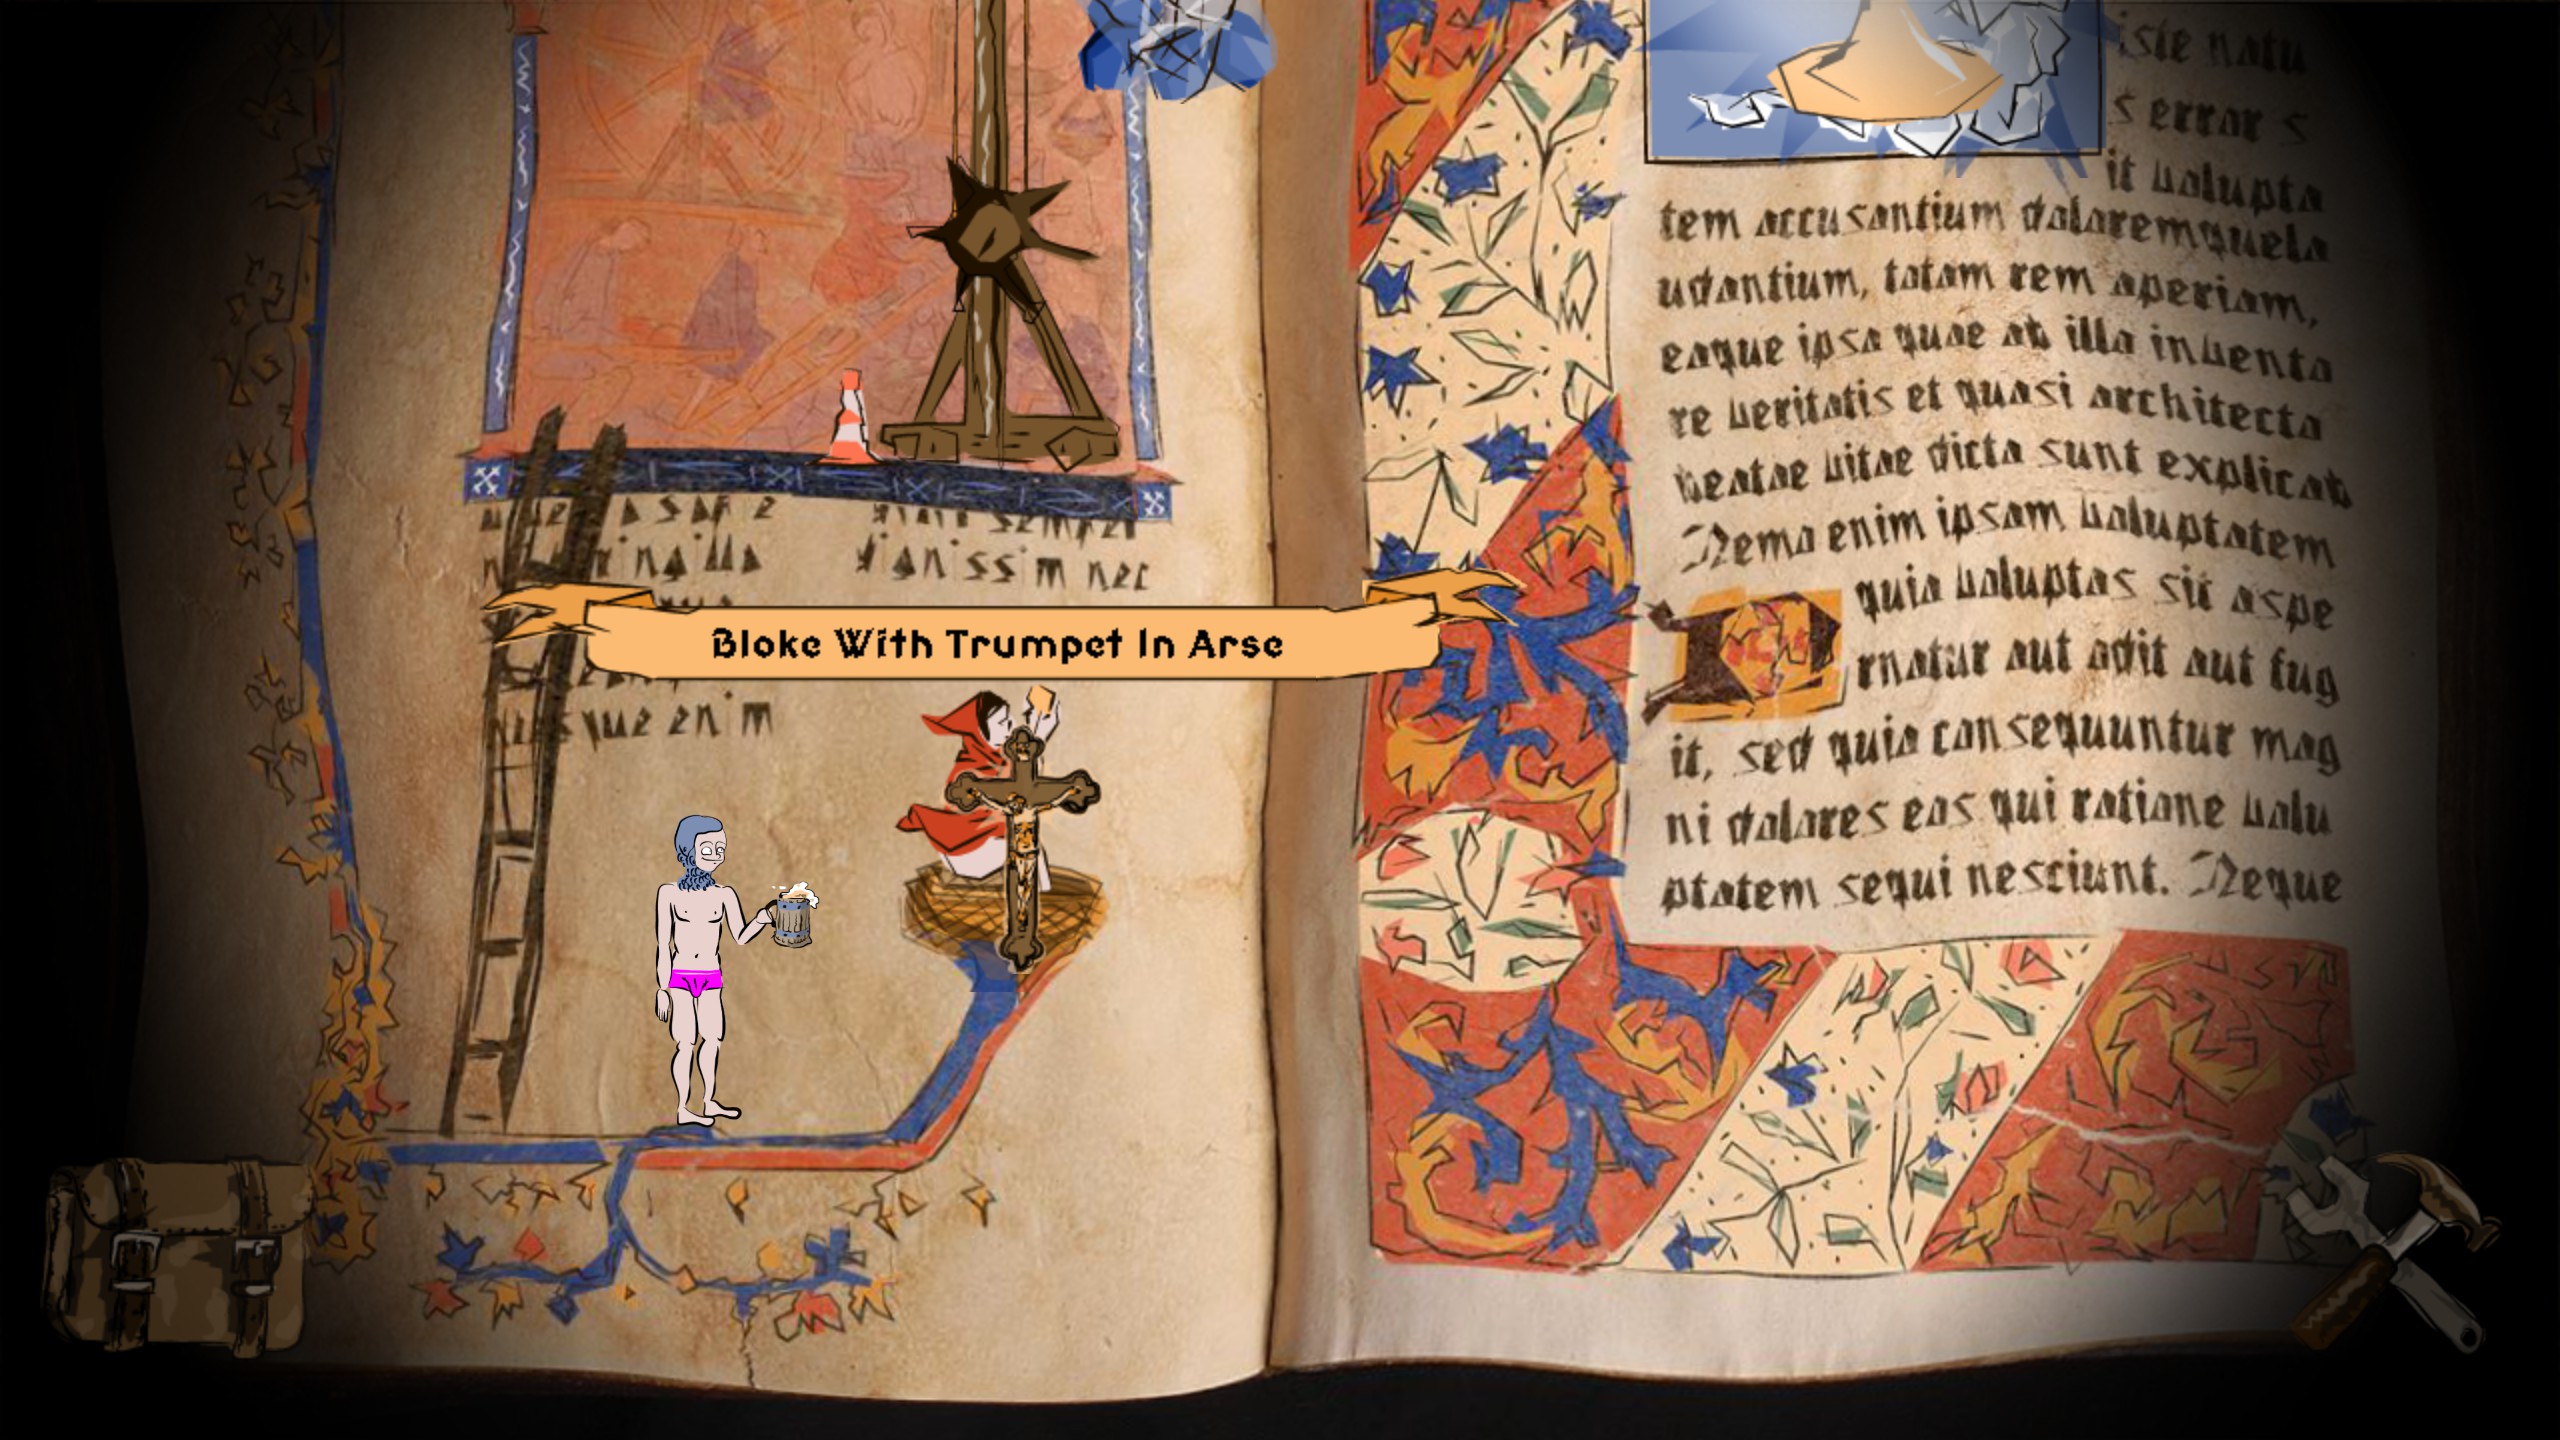 dignissim nec
Bloke With Trumpet In Arse
que enim
iste natu
s error s
it volupta
tem accusantium doloremquela
udantium, totam rem aperiam,
eaque ipsa quae ab illo invento
re veritatis et quasi architecto
beatae vitae dicta sunt explicab
Nemo enim ipsam voluptatem
quia voluptas sit aspe
rnatur aut odit aut fug
it, sed quia consequuntur mag
ni dolores eos qui ratione volu
ptatem sequi nesciunt. Neque